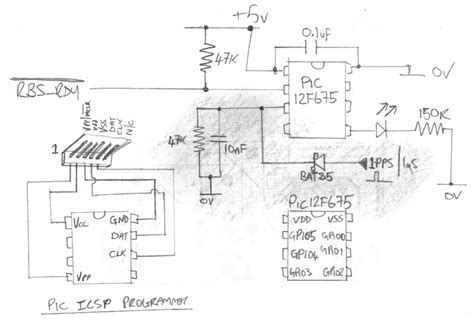 +5v
0.1uF
47K
PIC
12F675
0V
RBS-RDY
150R
47K
10nF
1PPS
1uS
BAT85
0V
0V
VPP/MCLR
VDD
VSS
DAT
CLK
N/C
1
VCC
GND
DAT
CLK
VPP
PIC12F675
VDD VSS
GPIO5 GPIO0
GPIO4 GPIO1
GPIO3 GPIO2
PIC ICSP PROGRAMMER